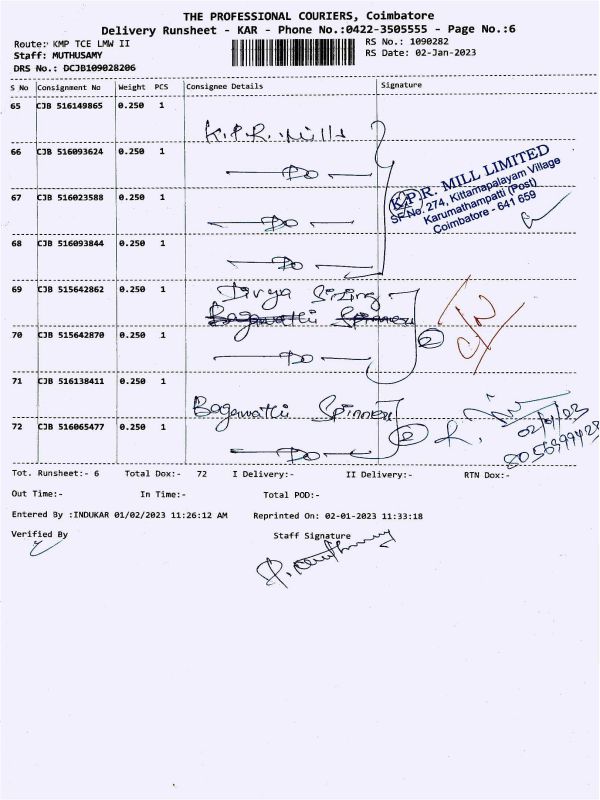 THE PROFESSIONAL COURIERS, Coimbatore
Delivery Runsheet - KAR - Phone No.:0422-3505555 - Page No.:6
Route: KMP TCE LMW II RS No.: 1090282
Staff: MUTHUSAMY RS Date: 02-Jan-2023
DRS No.: DCJB109028206
S No Consignment No Weight PCS Consignee Details Signature
65 CJB 516149865 0.250 1
K.P.R. Mills
66 CJB 516093624 0.250 1
Do
K.P.R. MILL LIMITED
SF No. 274, Kittampalayam Village
Karumathampatti (Post)
Coimbatore - 641 659
67 CJB 516023588 0.250 1
Do
68 CJB 516093844 0.250 1
Do
69 CJB 515642862 0.250 1
Divya Sizing
Bagawathi Spinners
70 CJB 515642870 0.250 1
Do
2
71 CJB 516138411 0.250 1
Bagawathi Spinners
72 CJB 516065477 0.250 1
Do
2
02/01/23
Tot. Runsheet:- 6 Total Dox:- 72 I Delivery:- II Delivery:- RTN Dox:-
Out Time:- In Time:- Total POD:-
Entered By :INDUKAR 01/02/2023 11:26:12 AM Reprinted On: 02-01-2023 11:33:18
Verified By Staff Signature